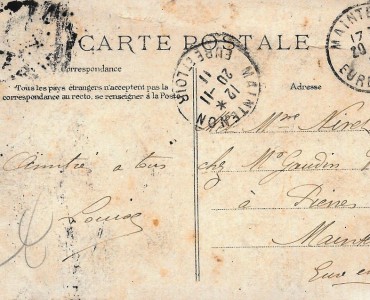 CARTE POSTALE
Correspondance
Tous les pays étrangers n'acceptent pas la
correspondance au recto, se renseigner à la Poste
Adresse
MAINTENON
12 *
20 -11
11
EURE ET LOIR
MAINTE
17
20
EURE
Amitiés a tous
Louise
Mme
chez Mr Gaudin
à Pierres
Mainte
Eure e